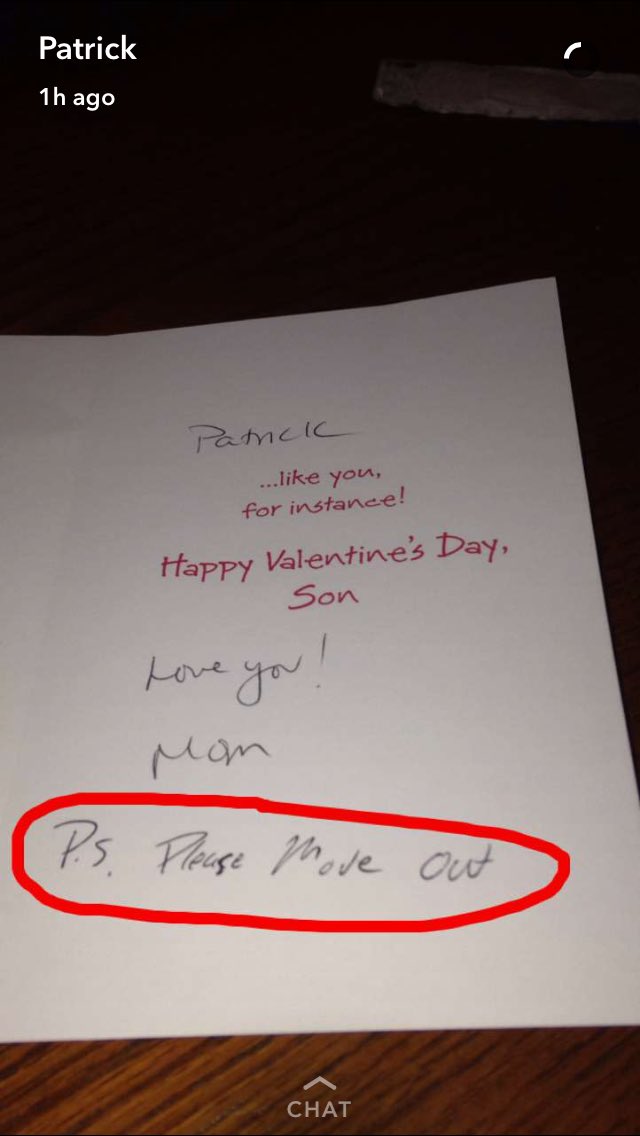 Patrick
1h ago
Patrick
...like you,
for instance!
Happy Valentine's Day,
Son
Love you!
Mom
P.S. Please Move Out
CHAT